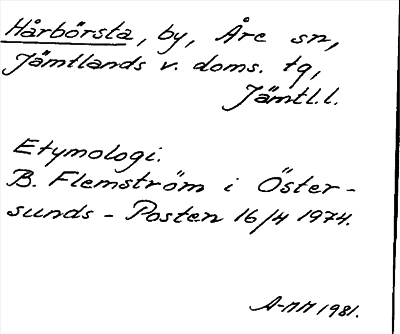 Hårbörsta, by, Åre sn,
Jämtlands v. doms. tg,
Jämtl.l.
Etymologi.
B. Flemström i Öster-
sunds-Posten 16/4 1974.
A-MM 1981.